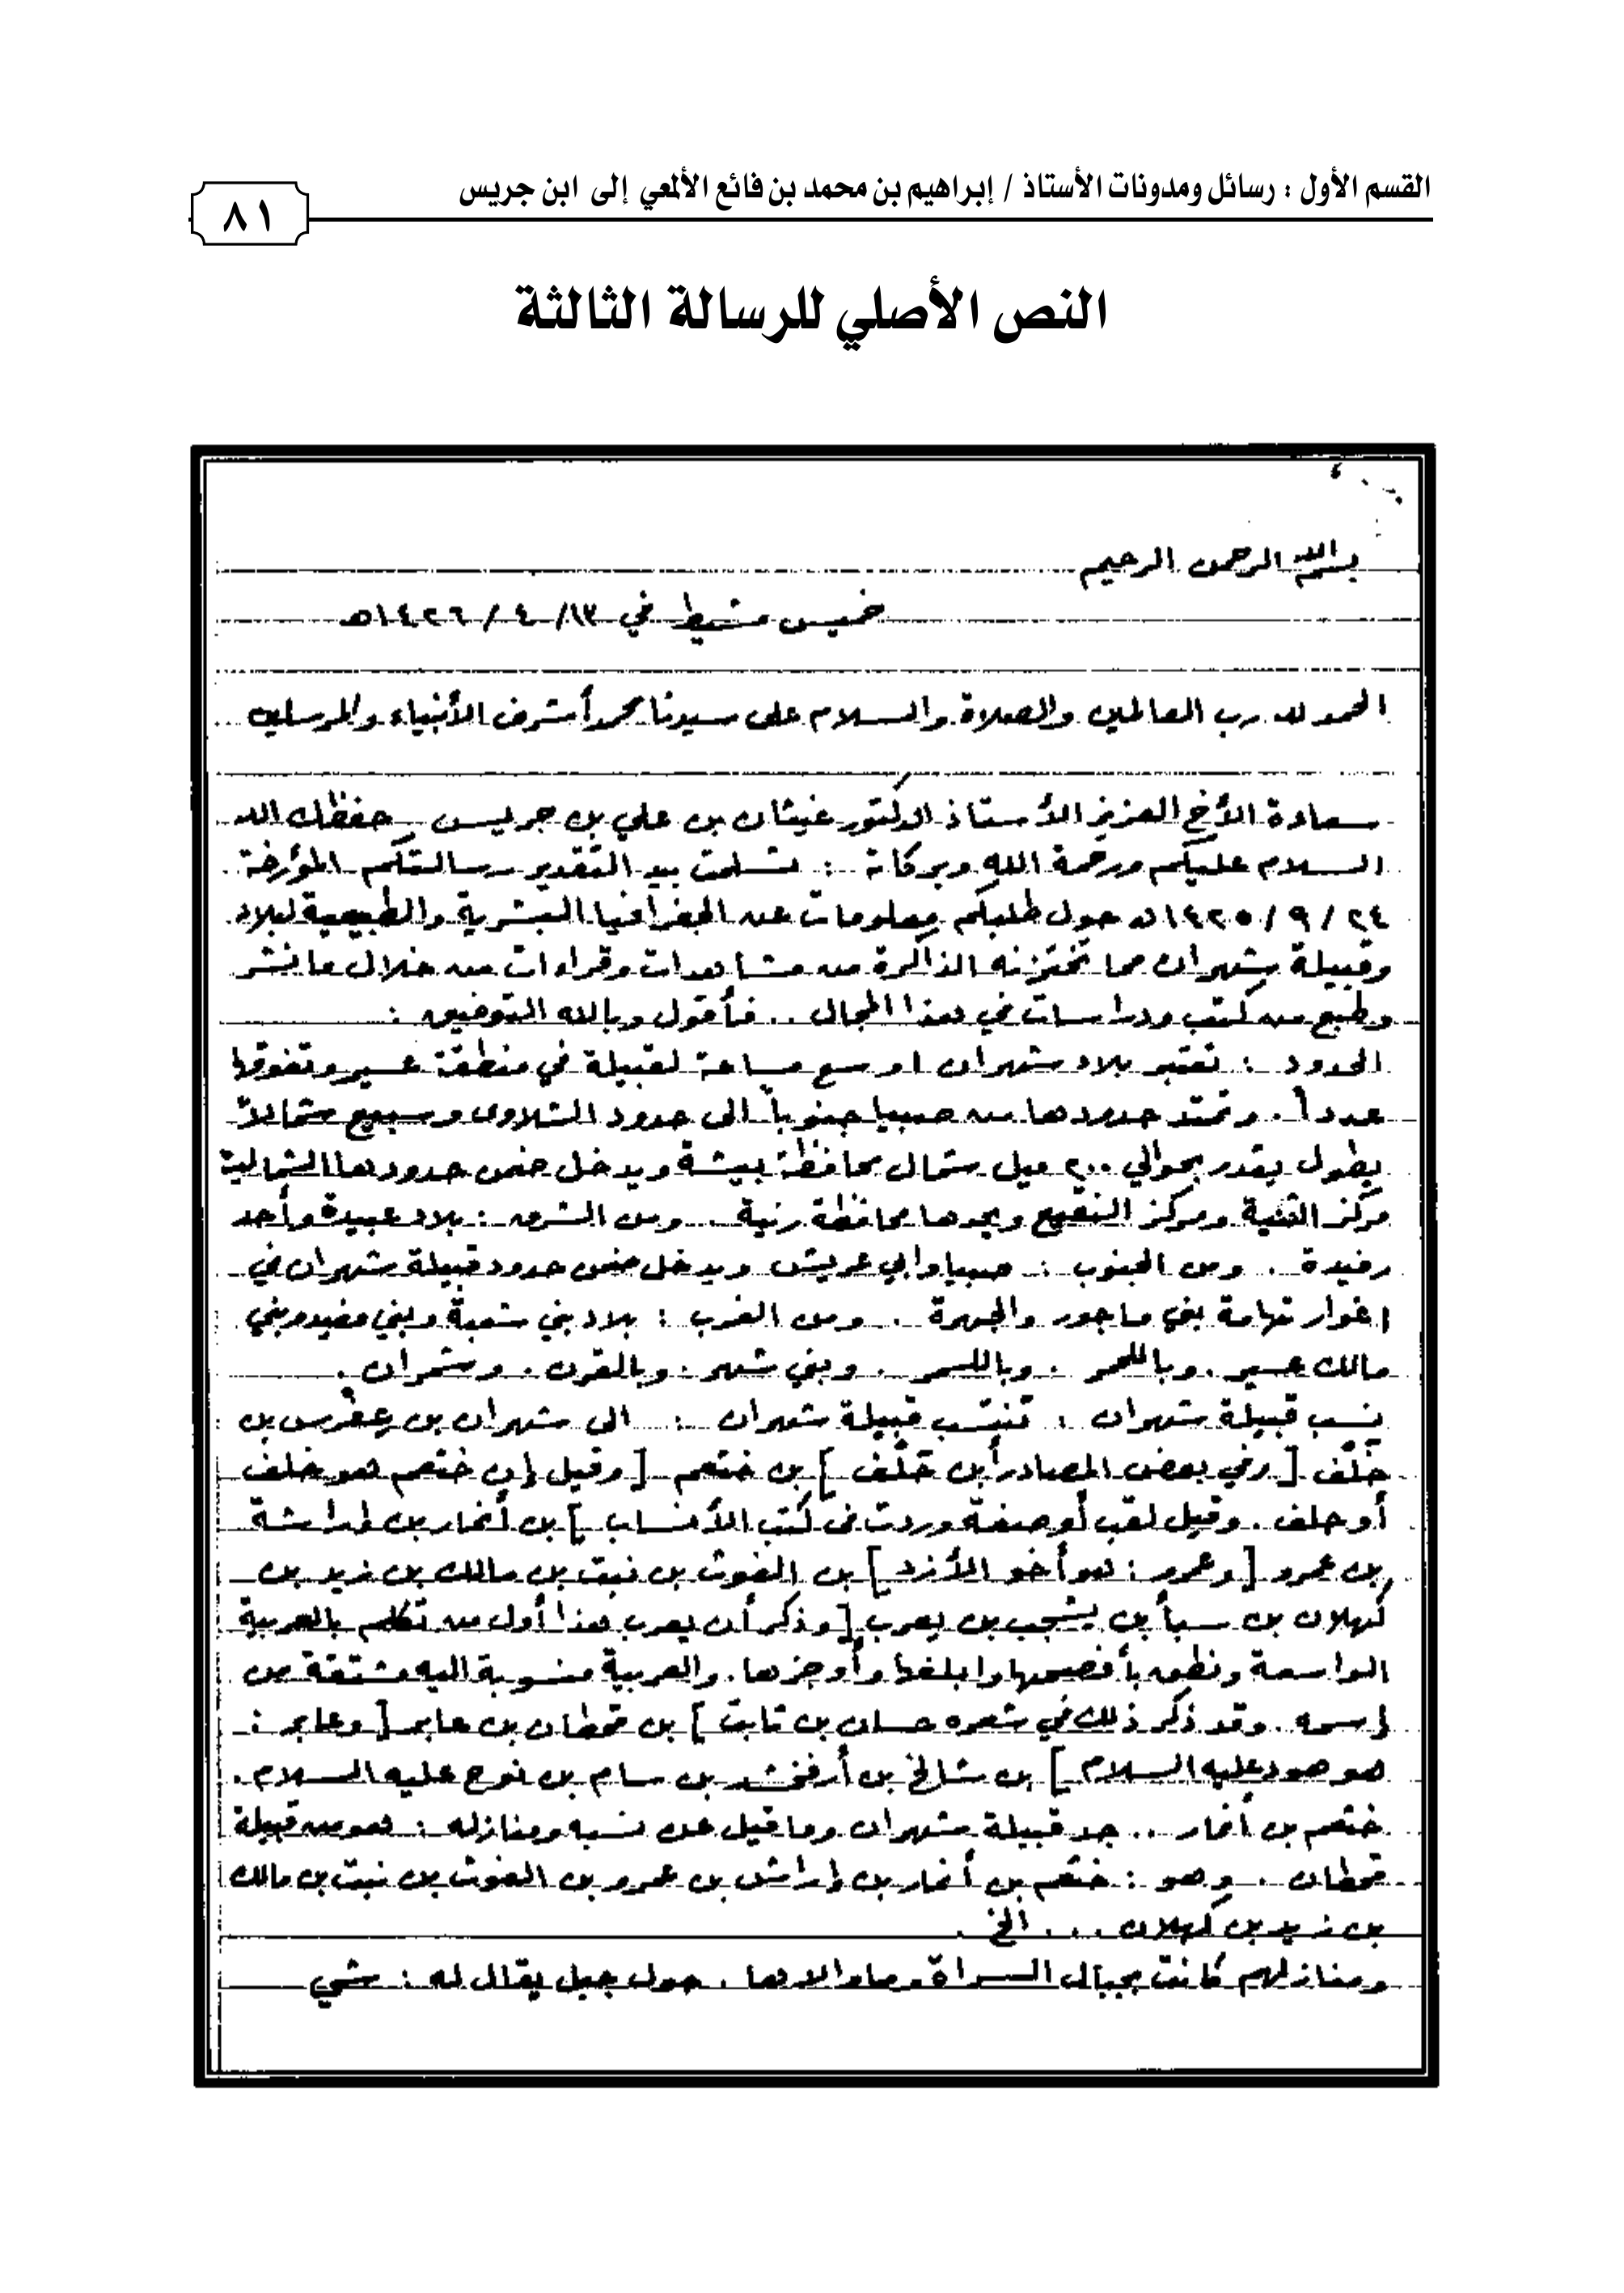 القسم الأول : رسائل ومدونات الأستاذ / إبراهيم بن محمد بن فائع الألمعي إلى ابن جريس
٨١
النص الأصلي للرسالة الثالثة
بسم الله الرحمن الرحيم
خميس مشيط في ١٣/ ٤ / ١٤٢٦هـ
الحمد لله رب العالمين والصلاة والسلام على سيدنا محمد أشرف الأنبياء والمرسلين
سعادة الأخ العزيز الأستاذ الدكتور غيثان بن علي بن جريس حفظك الله
السلام عليكم ورحمة الله وبركاته : تسلمت بيد التقدير رسالتكم المؤرخة
٢٤ / ٩ / ١٤٢٥هـ حول طلبكم معلومات عن الجغرافيا البشرية والطبيعية لبلاد
وقبيلة شهران مما تختزنه الذاكرة من مشاهدات وقراءات من خلال ما نشر
وطبع من كتب ودراسات في هذا المجال .. فأقول وبالله التوفيق :
الحدود : تعتبر بلاد شهران اوسع مساحة لقبيلة في منطقة عسير وتفوقها
عدداً . وتمتد حدودها من صبيا جنوباً الى حدود الشلاوى وسبيع شمالاً
بطول يقدر بحوالي ٢٠٠ ميل شمال محافظة بيشة ويدخل ضمن حدودها الشمالية
مركز الثنية ومركز النقيع ويحدها محافظة رنية .. ومن الشرق : بلاد عبيدة وأحد
رفيدة .. ومن الجنوب : صبيا وابي عريش ويدخل ضمن حدود قبيلة شهران في
اغوار تهامة بني ماجور والجهرة .. ومن الغرب : بلاد بني شعبة وبني مغيد وبني
مالك عسير . وباللحمر . وباللسمر . وبني شهر . وبالقرن . وشمران .
نسب قبيلة شهران : تنتسب قبيلة شهران : الى شهران بن عفرس بن
خلّف [ وفي بعض المصادر أبن حَلّف ] بن خثعم [ وقيل إن خثعم هو خلف
أو حلف . وقيل لقب أو صفة وردت في كتب الأنساب ] بن أنمار بن إراشة
بن عمرو [ وعمرو : هو أخو الأزد ] بن الغوث بن نبت بن مالك بن زيد بن
كهلان بن سبأ بن يشجب بن يعرب [ وذكر أن يعرب هذا أول من تكلم بالعربية
الواسعة ونطق بأفصحها وابلغها وأوجزها . والعربية منسوبة اليه مشتقة من
إسمه . وقد ذكر ذلك في شعره حسان بن ثابت ] بن قحطان بن عابر [ وعابر :
هو هود عليه السلام ] بن شالخ بن أرفخشد بن سام بن نوح عليه السلام .
خثعم بن أنمار .. جد قبيلة شهران وما قيل عن نسبه ومنازله : هو من قبيلة
قحطان . وهو : خثعم بن أنمار بن إراش بن عمرو بن الغوث بن نبت بن مالك
بن زيد بن كهلان ... الخ .
ومنازلهم كانت بجبال السراة وما والاها . حول جبل يقال له : شي